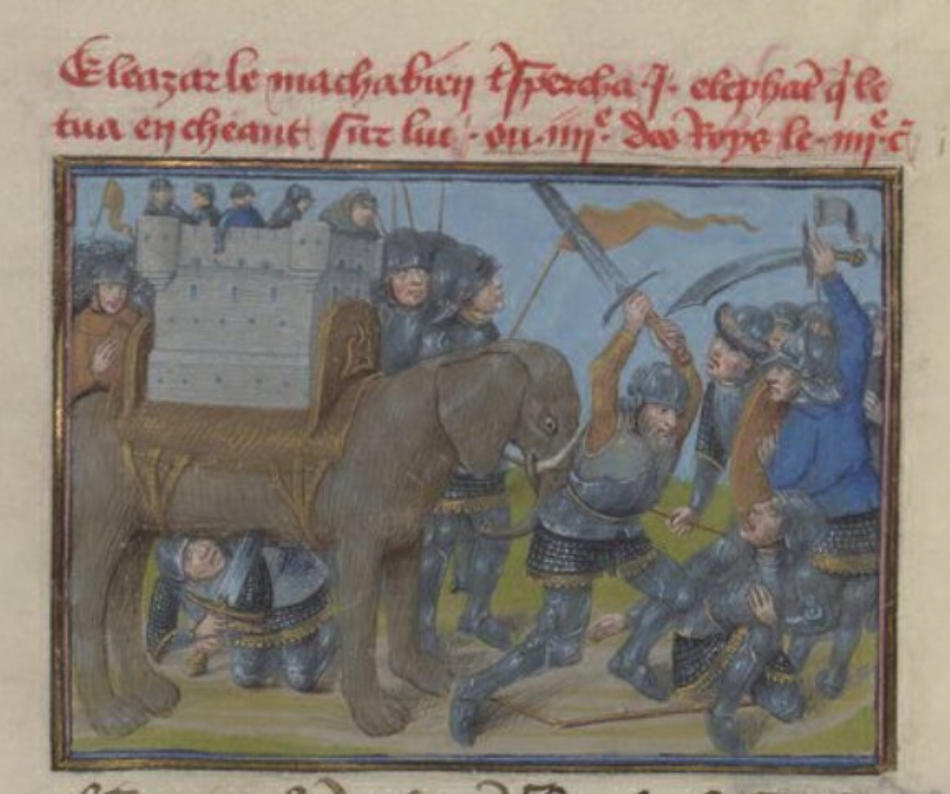 Eleazar le machabien t̃spercha .I. elephãt q̃ le
tua en cheant sur lui . ou .iiii.ᵉ des Roys le .iiii.ᵉ c̃